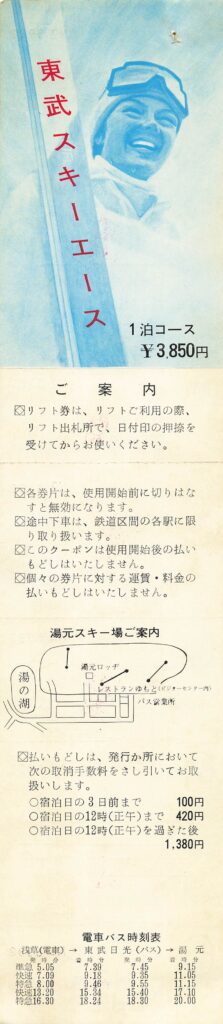 東武スキーエース
1泊コース
￥3,850円
ご案内
リフト券は、リフトご利用の際、
リフト出札所で、日付印の押捺を
受けてからお使いください。
各券片は、使用開始前に切りはな
すと無効になります。
途中下車は、鉄道区間の各駅に限
り取り扱います。
このクーポンは使用開始後の払い
もどしはいたしません。
個々の券片に対する運賃・料金の
払いもどしはいたします。
湯元スキー場ご案内
湯の湖
湯元ロッヂ
レストランゆもと(ビジターセンター内)
バス営業所
払いもどしは、発行か所において
次の取消手数料をさし引いてお取
扱いします。
○宿泊日の3日前まで 100円
○宿泊日の12時(正午)まで 420円
○宿泊日の12時(正午)を過ぎた後
1,380円
電車バス時刻表
発時分 着時分 発時分 着時分
浅草(電車)→東武日光(バス)→湯元
準急 5.05 7.39 7.45 9.15
快速 7.09 9.18 9.35 11.05
特急 8.00 9.46 9.55 11.15
快速13.20 15.34 15.40 17.10
特急16.30 18.24 18.30 20.00